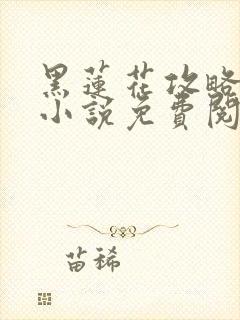 黑蓮花攻略
小說免費閱
苗稀